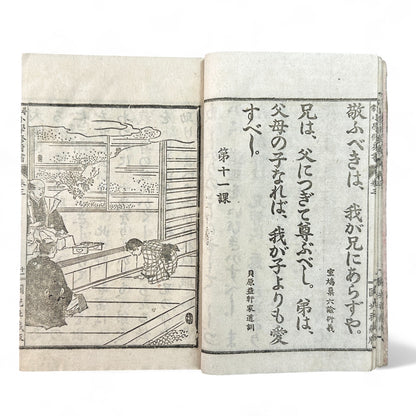 敬ふべきは、我が兄にあらずや。
室鳩巣六諭衍義
兄は、父につぎて尊ぶべし。弟は、
父母の子なれば、我が子よりも愛
すべし。
貝原益軒家道訓
第十一課